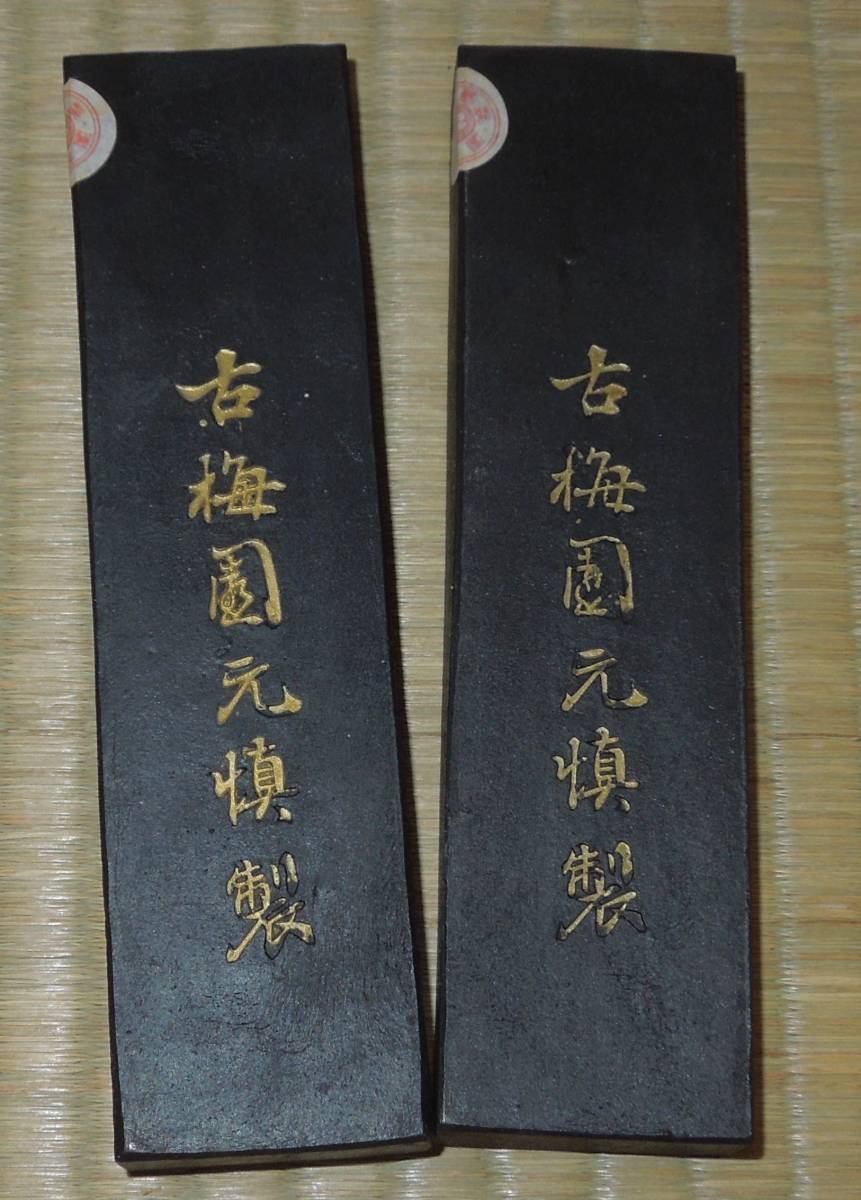 古梅園元慎製
古梅園元慎製